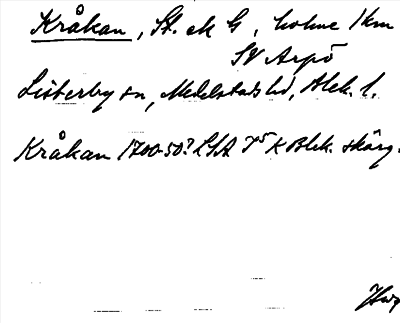 Kråkan, St. ek G, holme 1 km
SV Arpö
Listerby sn, Medelstads hd, Blek. l.
Kråkan 1700-50? LSA T⁵ K Blek. skärg.